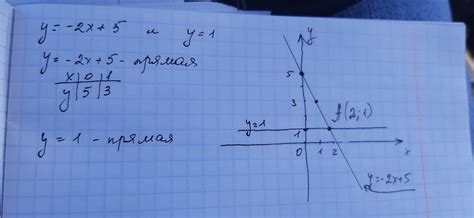 y = -2x + 5 и y = 1
y = -2x + 5 - прямая
x | 0 | 1
y | 5 | 3
y = 1 - прямая
y
5
3
A(2; 1)
y=1
1
0 1 2 x
y=-2x+5